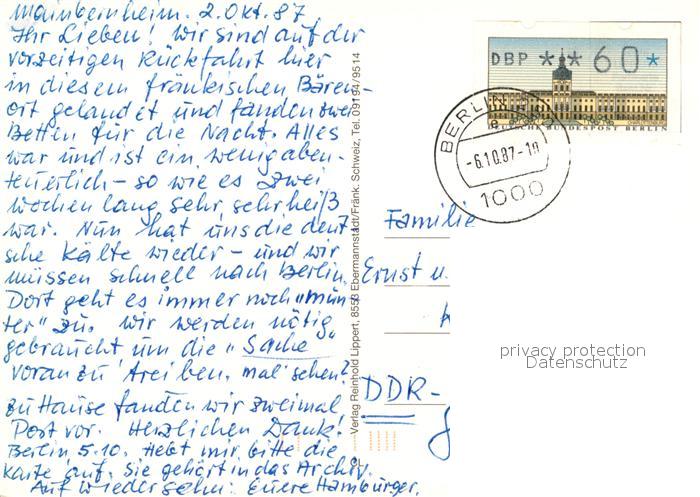 Mainbernheim. 2. Okt. 87
Ihr Lieben! Wir sind auf der
vorzeitigen Rückfahrt hier
in diesem fränkischen Bären-
ort gelandet und fanden zwei
Betten für die Nacht. Alles
war und ist ein wenig aben-
teuerlich – so wie es zwei
Wochen lang sehr, sehr heiß
war. Nun hat uns die deut
sche Kälte wieder – und wir
müssen schnell nach Berlin.
Dort geht es immer noch "mun
ter" zu. Wir werden nötig
gebraucht um die "Sache"
voranzutreiben. mal sehen?
Zu Hause fanden wir zweimal
Post vor. Herzlichen Dank!
Berlin 5.10. Hebt mir bitte die
Karte auf. Sie gehört in das Archiv.
Auf Wiedersehn: Euere Hamburger.
Verlag Reinhold Lippert, 8553 Ebermannstadt/Fränk. Schweiz, Tel. 09194/9514
DBP ** 60*
DEUTSCHE BUNDESPOST BERLIN
BERLIN
e
-6.10.87-
1000
Familie
Ernst u.
DDR-
privacy protection
Datenschutz